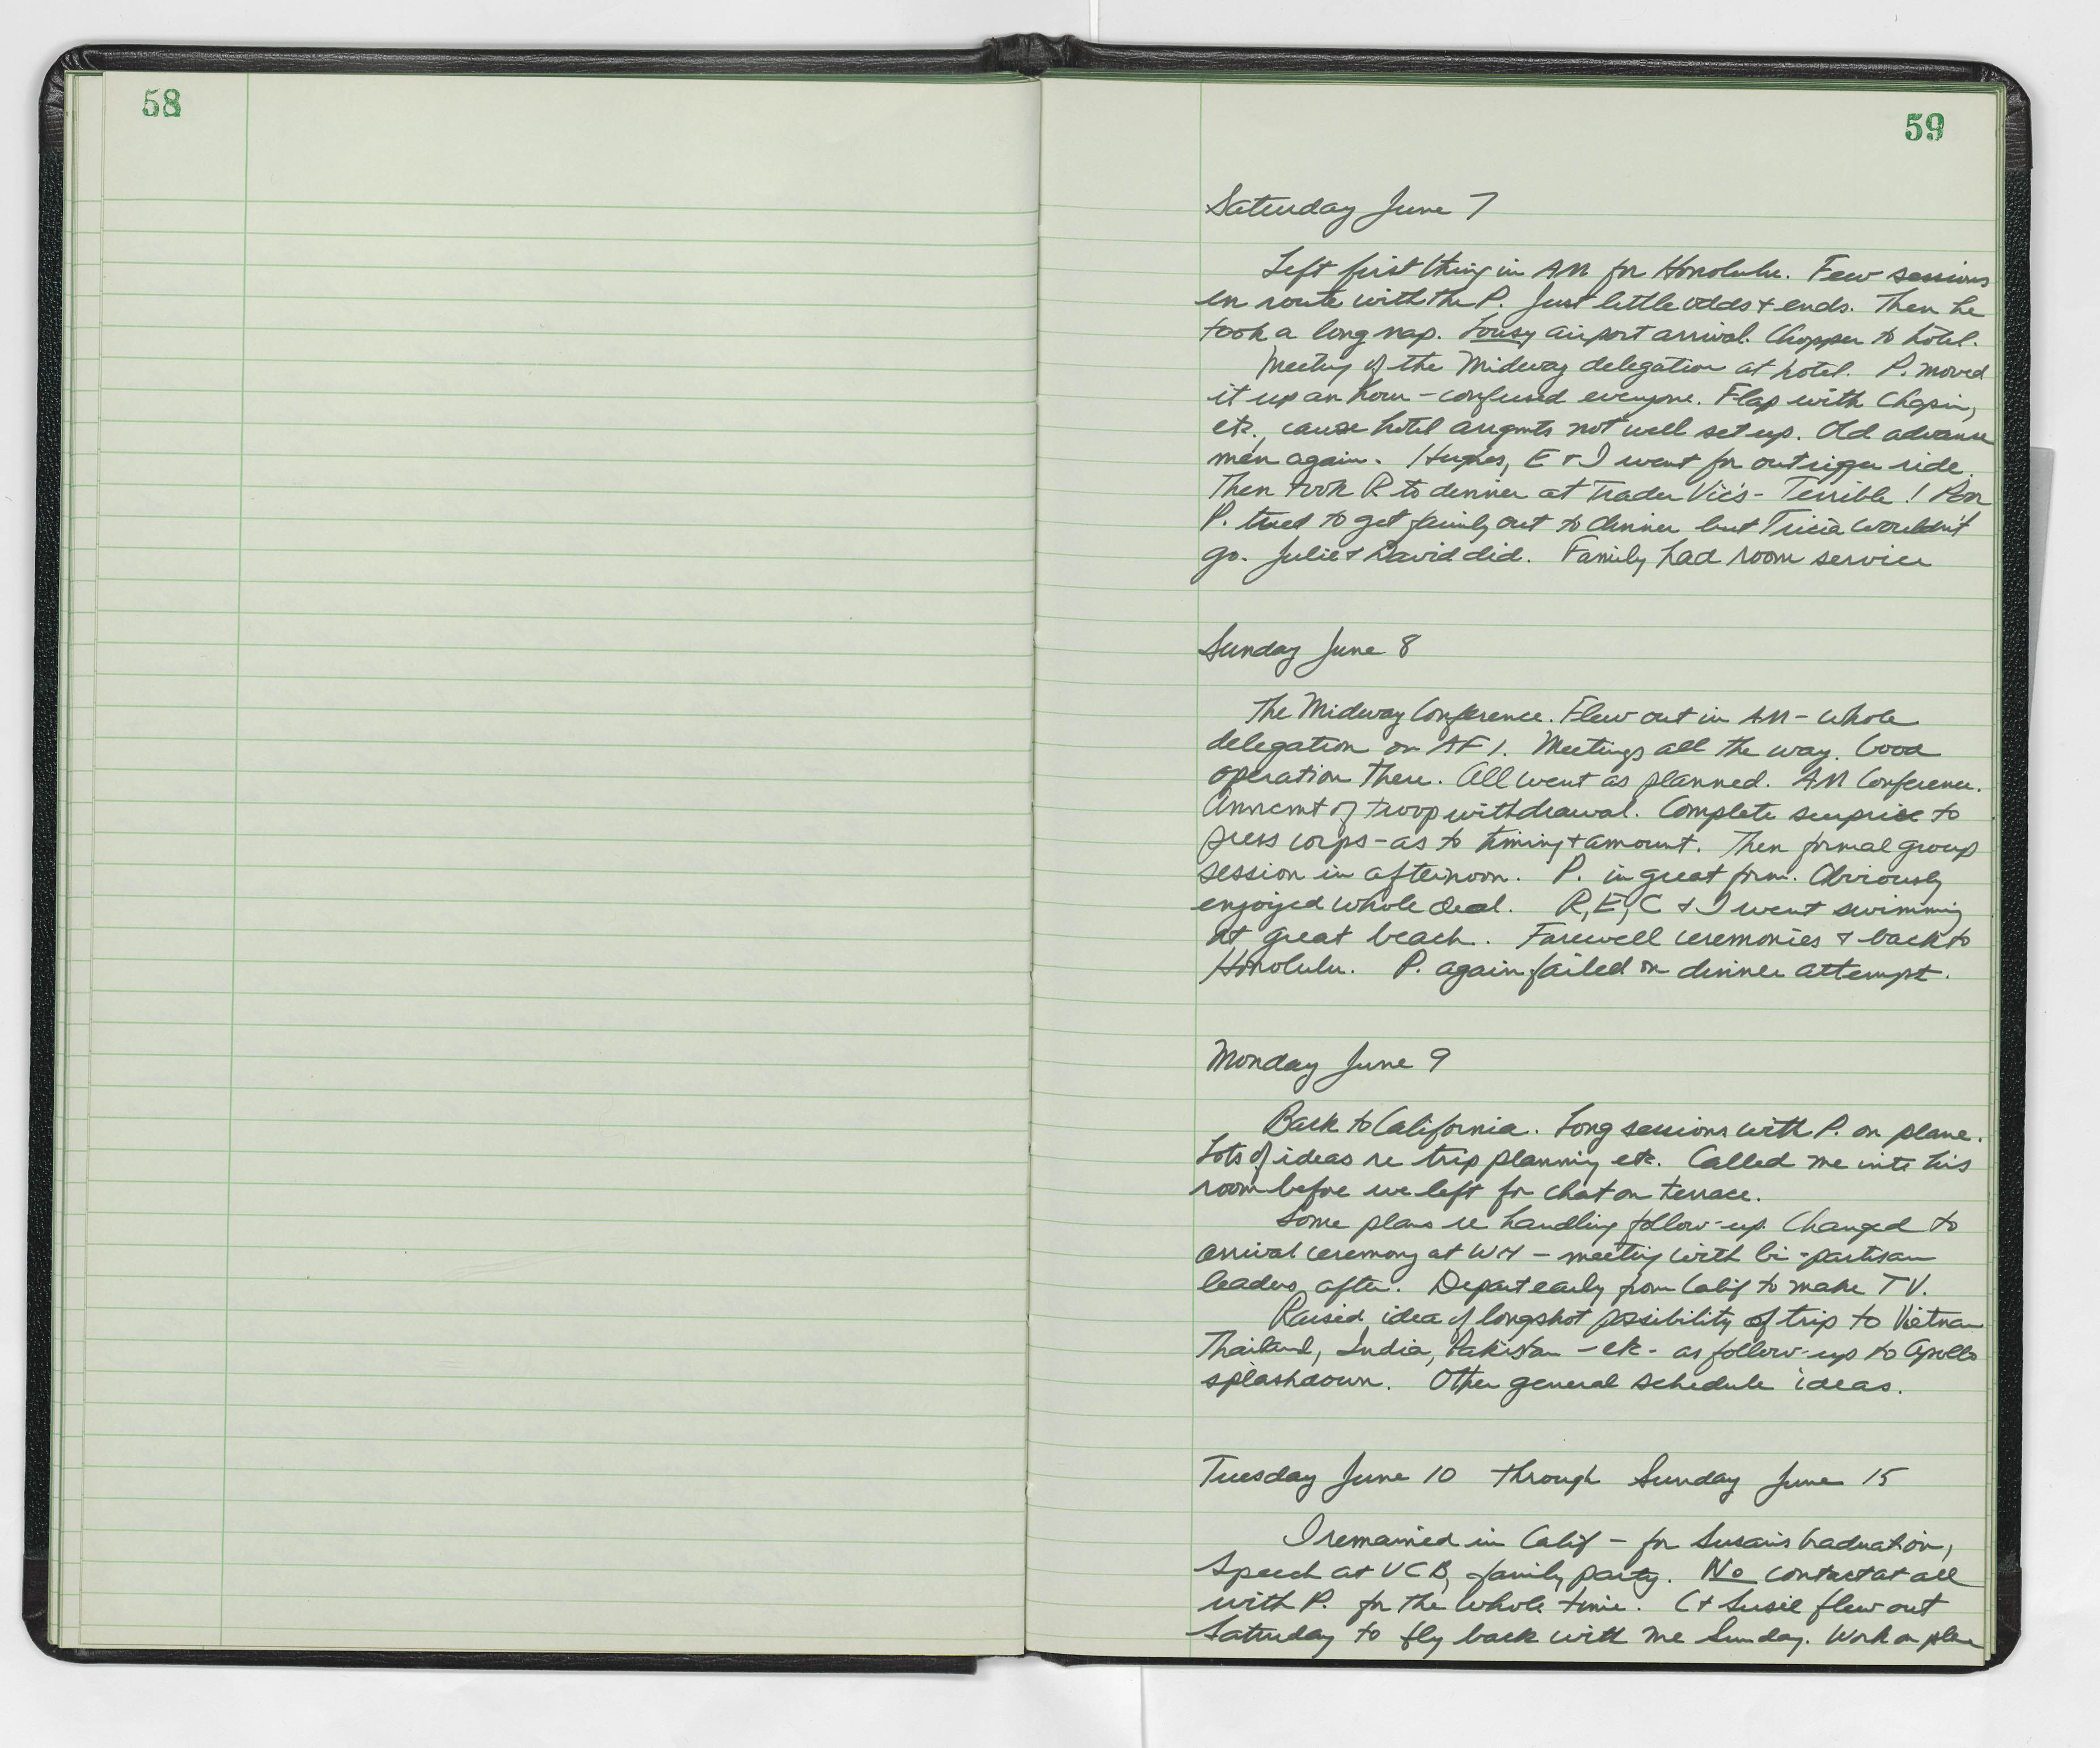 58
59
Saturday June 7
Left first thing in AM for Honolulu. Few sessions
en route with the P. Just little odds & ends. Then he
took a long nap. Lousy airport arrival. Chopper to hotel.
Meeting of the Midway delegation at hotel. P. moved
it up an hour - confused everyone. Flap with Chapin,
etc., cause hotel arrgmts not well set up. Old advance
men again. Hughes, E & I went for outrigger ride.
Then took R to dinner at Trader Vic's - Terrible! Poor
P. tried to get family out to dinner but Tricia wouldn't
go. Julie & David did. Family had room service
Sunday June 8
The Midway Conference. Flew out in AM - whole
delegation on AF1. Meetings all the way. Good
operation there. All went as planned. AM Conference.
Anncmt of troop withdrawal. Complete surprise to
press corps - as to timing & amount. Then formal group
session in afternoon. P. in great form. Obviously
enjoyed whole deal. R, E, C & I went swimming
at great beach. Farewell ceremonies & back to
Honolulu. P. again failed on dinner attempt.
Monday June 9
Back to California. Long sessions with P. on plane.
Lots of ideas re trip planning etc. Called me into his
room before we left for chat on terrace.
Some plans re handling follow-up. Changed to
arrival ceremony at WH - meeting with bi-partisan
leaders after. Depart early from Calif to make TV.
Raised idea of longshot possibility of trip to Vietnam
Thailand, India, Pakistan - etc - as follow-up to Apollo
splashdown. Other general schedule ideas.
Tuesday June 10 through Sunday June 15
I remained in Calif - for Susan's Graduation,
Speech at UCB, family party. No contact at all
with P. for the whole time. C & Susie flew out
Saturday to fly back with me Sunday. Work on plane